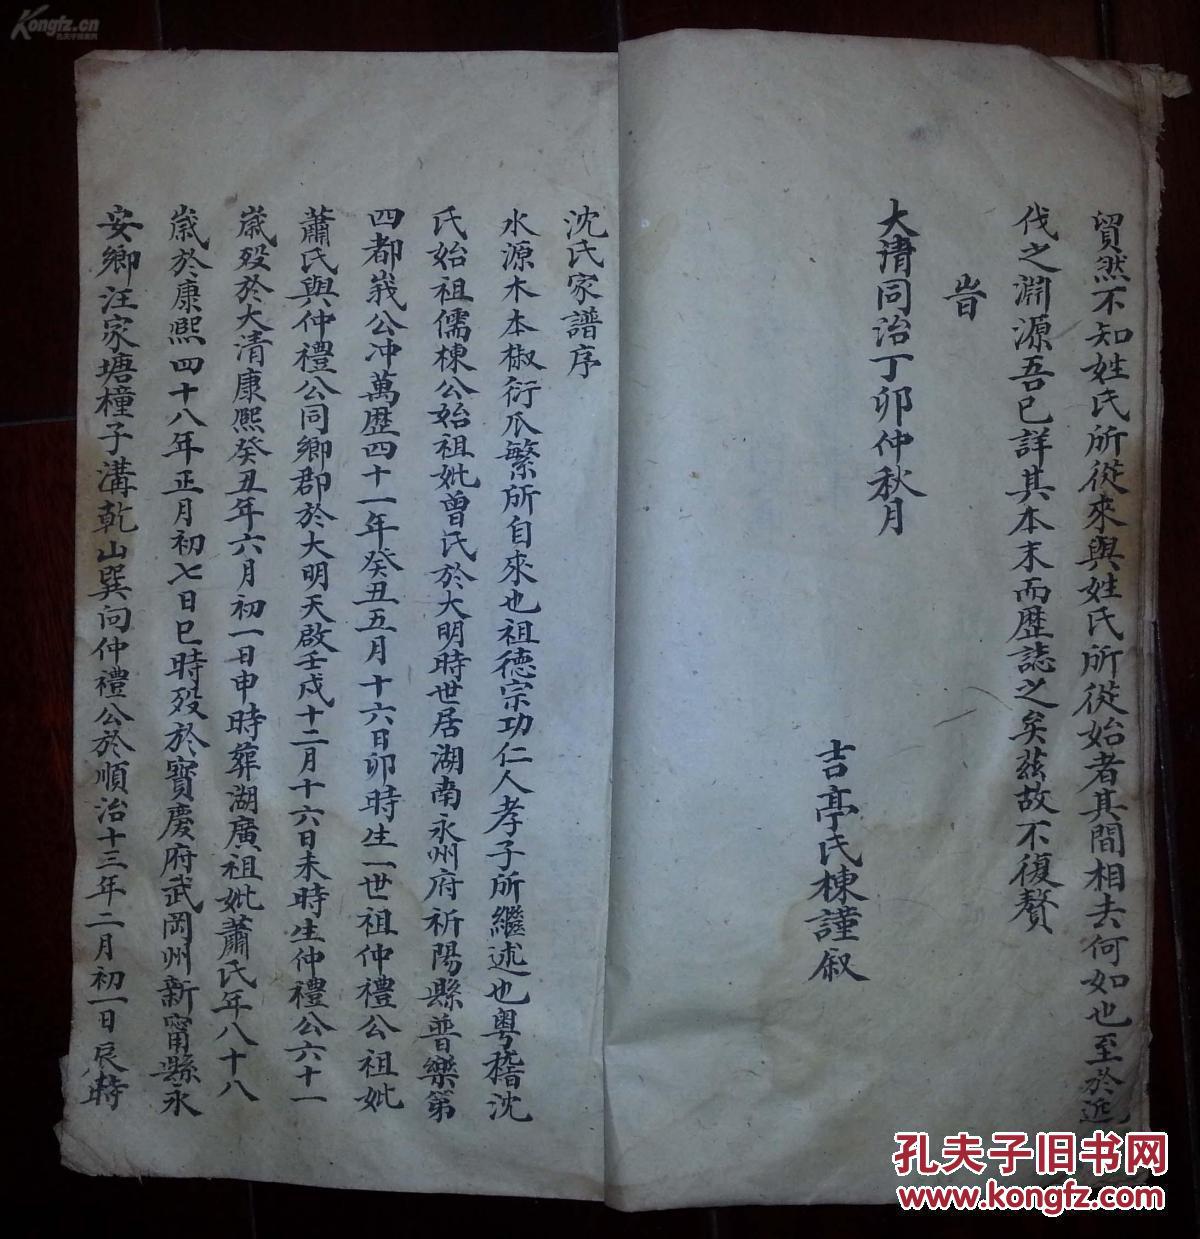 貿然不知姓氏所從來與姓氏所從始者其間相去何如也至於近
伐之淵源吾已詳其本末而歷誌之矣茲故不復贅
旹
大清同治丁卯仲秋月
吉亭氏棟謹叙
沈氏家譜序
水源木本椒衍瓜繁所自來也祖德宗功仁人孝子所繼述也粵稽沈
氏始祖儒棟公始祖妣曾氏於大明時世居湖南永州府祈陽縣普樂第
四都峩公冲萬歷四十一年癸丑五月十六日卯時生一世祖仲禮公祖妣
蕭氏與仲禮公同鄉郡於大明天啟壬戌十二月十六日未時生仲禮公六十一
歲歿於大清康熙癸丑年六月初一日申時葬湖廣祖妣蕭氏年八十八
歲於康熙四十八年正月初七日巳時歿於寶慶府武岡州新甯縣永
安鄉汪家塘橦子溝乾山巽向仲禮公於順治十三年二月初一日辰時
Kongfz.cn
孔夫子旧书网
孔夫子旧书网
www.kongfz.com